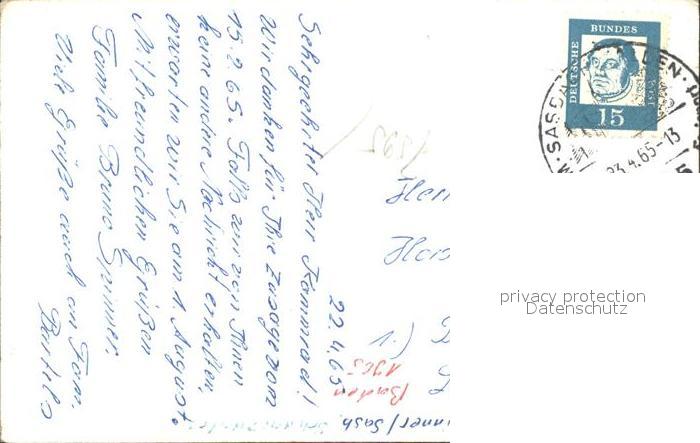 22.4.65.
Sehr geehrter Herr Kamrad!
Wir danken für Ihre Zusage vom
15.2.65. Falls wir von Ihnen
keine andere Nachricht erhalten,
erwarten wir Sie am 1. August.
Mit freundlichen Grüßen
Familie Bruno Spinner.
Viele Grüße auch an Fam.
Bartels
DEUTSCHE
BUNDES
15
23.4.65-13
Herr
1.)
Baden
1965
privacy protection
Datenschutz